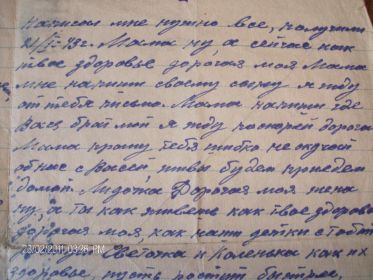 Написал мне нужно все, получили
21/II-43г. Мама ну, а сейчас как
твое здоровье дорогая моя Мама
мне напиши своему сыну я жду
от тебя письмо. Мама напиши где
Вася брат мой я жду поскорей дорогая
Мама прошу тебя шибко не скучай
об нас с Васей, живы будем приедем
домой. Лидочка Дорогая моя жена
ну, а ты как живешь как твое здоровье
дорогая моя как наши детки с тобой
Светочка и Коленька как их
здоровье, пусть растут быстрее,
23/02/2011 03:26 PM